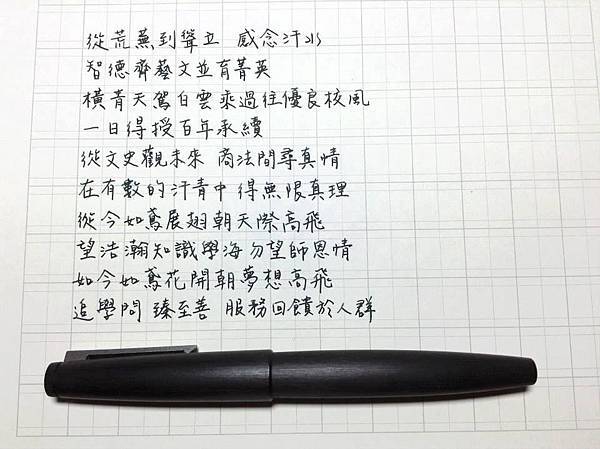 從荒蕪到聳立 感念汗水
智德齊藝文並育菁英
橫青天駕白雲乘過往優良校風
一日得授百年承續
從文史觀未來 商法間尋真情
在有數的汗青中 得無限真理
從今如鳶展翅朝天際高飛
望浩瀚知識學海勿望師恩情
如今如鳶花開朝夢想高飛
追學問 臻至善 服務回饋於人群